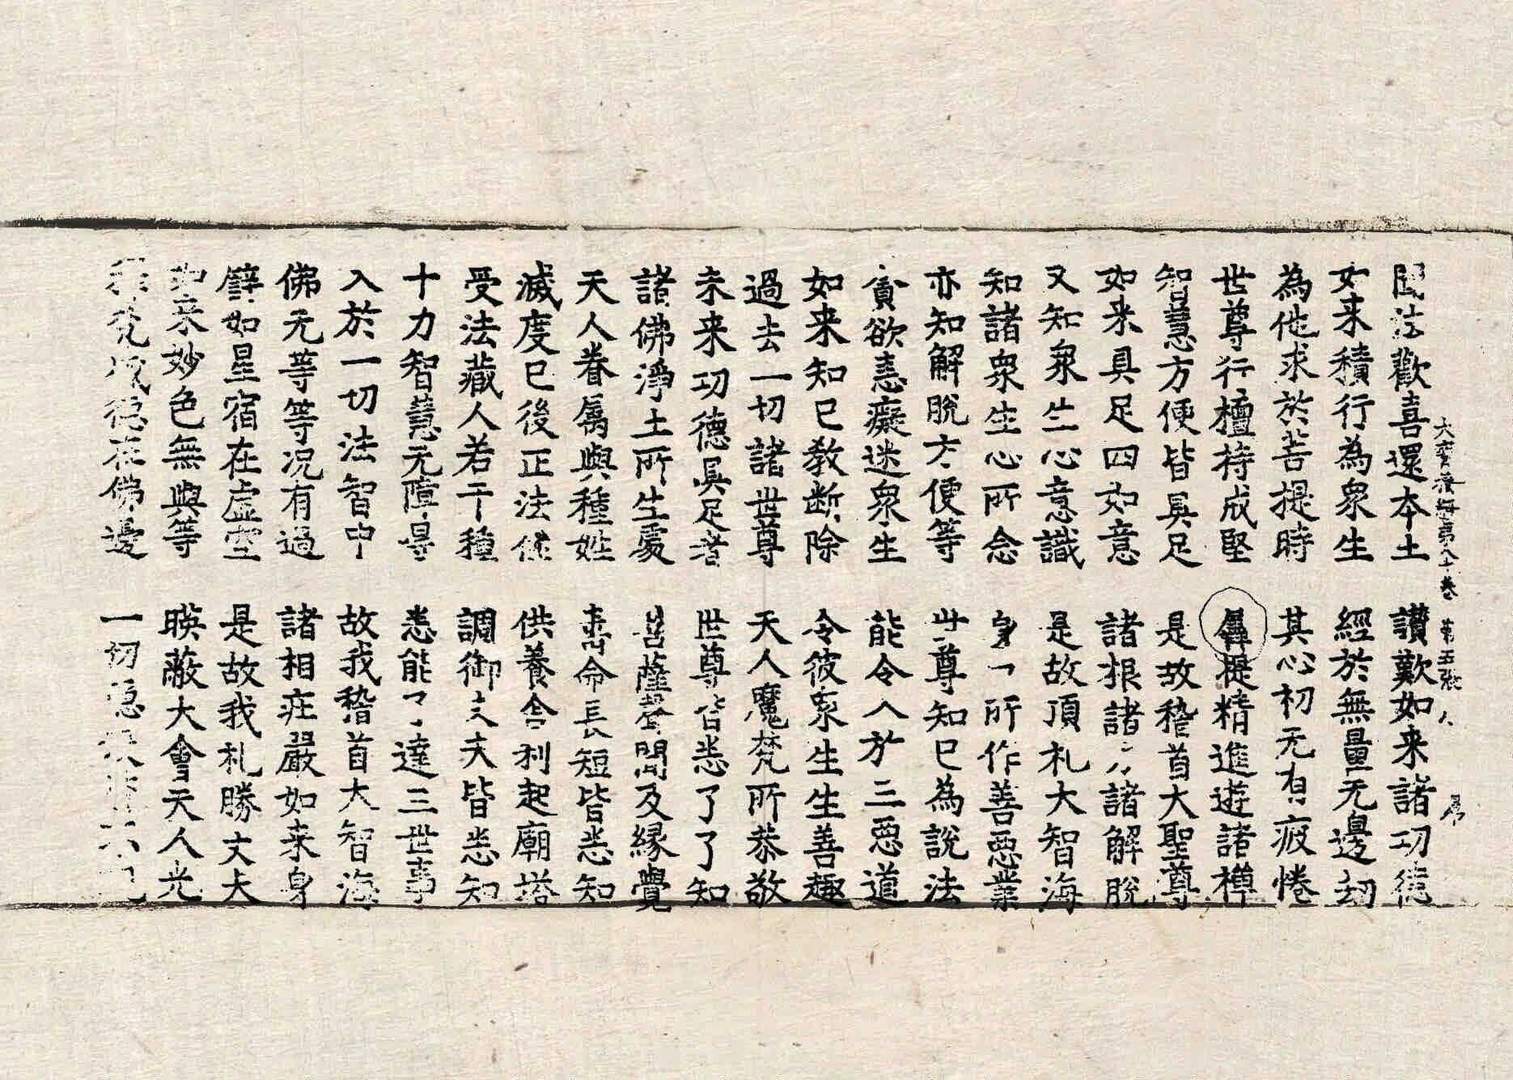 聞法歡喜還本土　讃歎如来諸功徳
大寶積經第八十卷　第五張　人
如来積行為衆生　經於無量无邊劫
為他求於菩提時　其心初无有疲惓
世尊行檀持戒堅　羼提精進遊諸禅
智慧方便皆具足　是故稽首大聖尊
如来具足四如意　諸根諸力諸解脫
又知衆生心意識　是故頂礼大智海
知諸衆生心所念　身口所作善惡業
亦知解脫方便等　世尊知已為說法
貪欲恚癡迷衆生　能令入於三惡道
如来知已教断除　令彼衆生生善趣
過去一切諸世尊　天人魔梵所恭敬
未来功德具足者　世尊皆悉了了知
諸佛淨土所生處　菩薩聲聞及緣覺
天人眷属與種姓　壽命長短皆悉知
滅度已後正法住　供養舍利起廟塔
受法藏人若干種　調御丈夫皆悉知
十力智慧无障㝵　悉能了達三世事
入於一切法智中　故我稽首大智海
佛无等等况有過　諸相莊嚴如来身
譬如星宿在虛空　是故我礼勝丈夫
如来妙色無與等　暎蔽大會天人光
釋梵威德在佛邊　一切隱